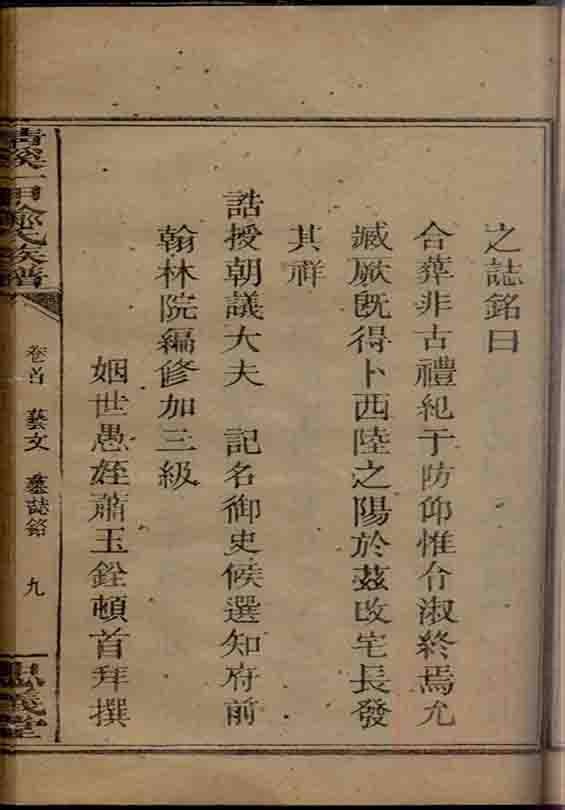 之誌銘曰
合葬非古禮紀于防仰惟令淑終焉允
臧厥旣得卜西陸之陽於茲改宅長發
其祥
誥授朝議大夫　記名御史候選知府前
翰林院編修加三級
姻世愚姪蕭玉銓頓首拜撰
清溪一甲鄭氏族譜
卷首　藝文　墓誌銘　九
思義堂